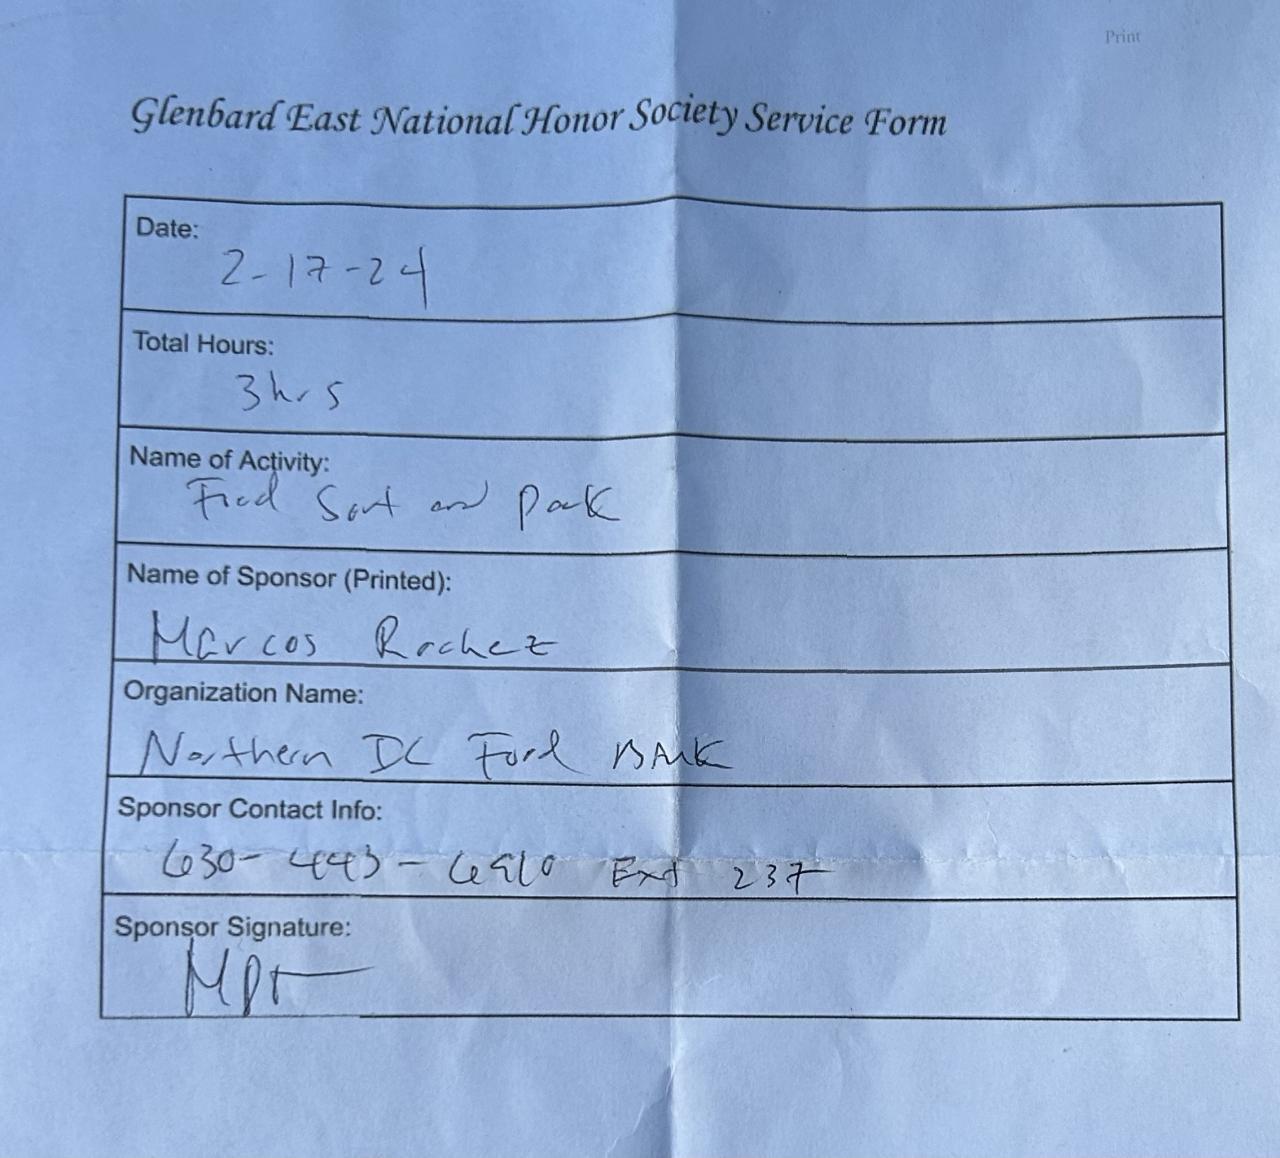 Print
Glenbard East National Honor Society Service Form
Date:
2-17-24
Total Hours:
3hrs
Name of Activity:
Food Sort and Pack
Name of Sponsor (Printed):
Marcos
Organization Name:
Northern IL Food BANK
Sponsor Contact Info:
630-443-6910 Ext 237
Sponsor Signature: